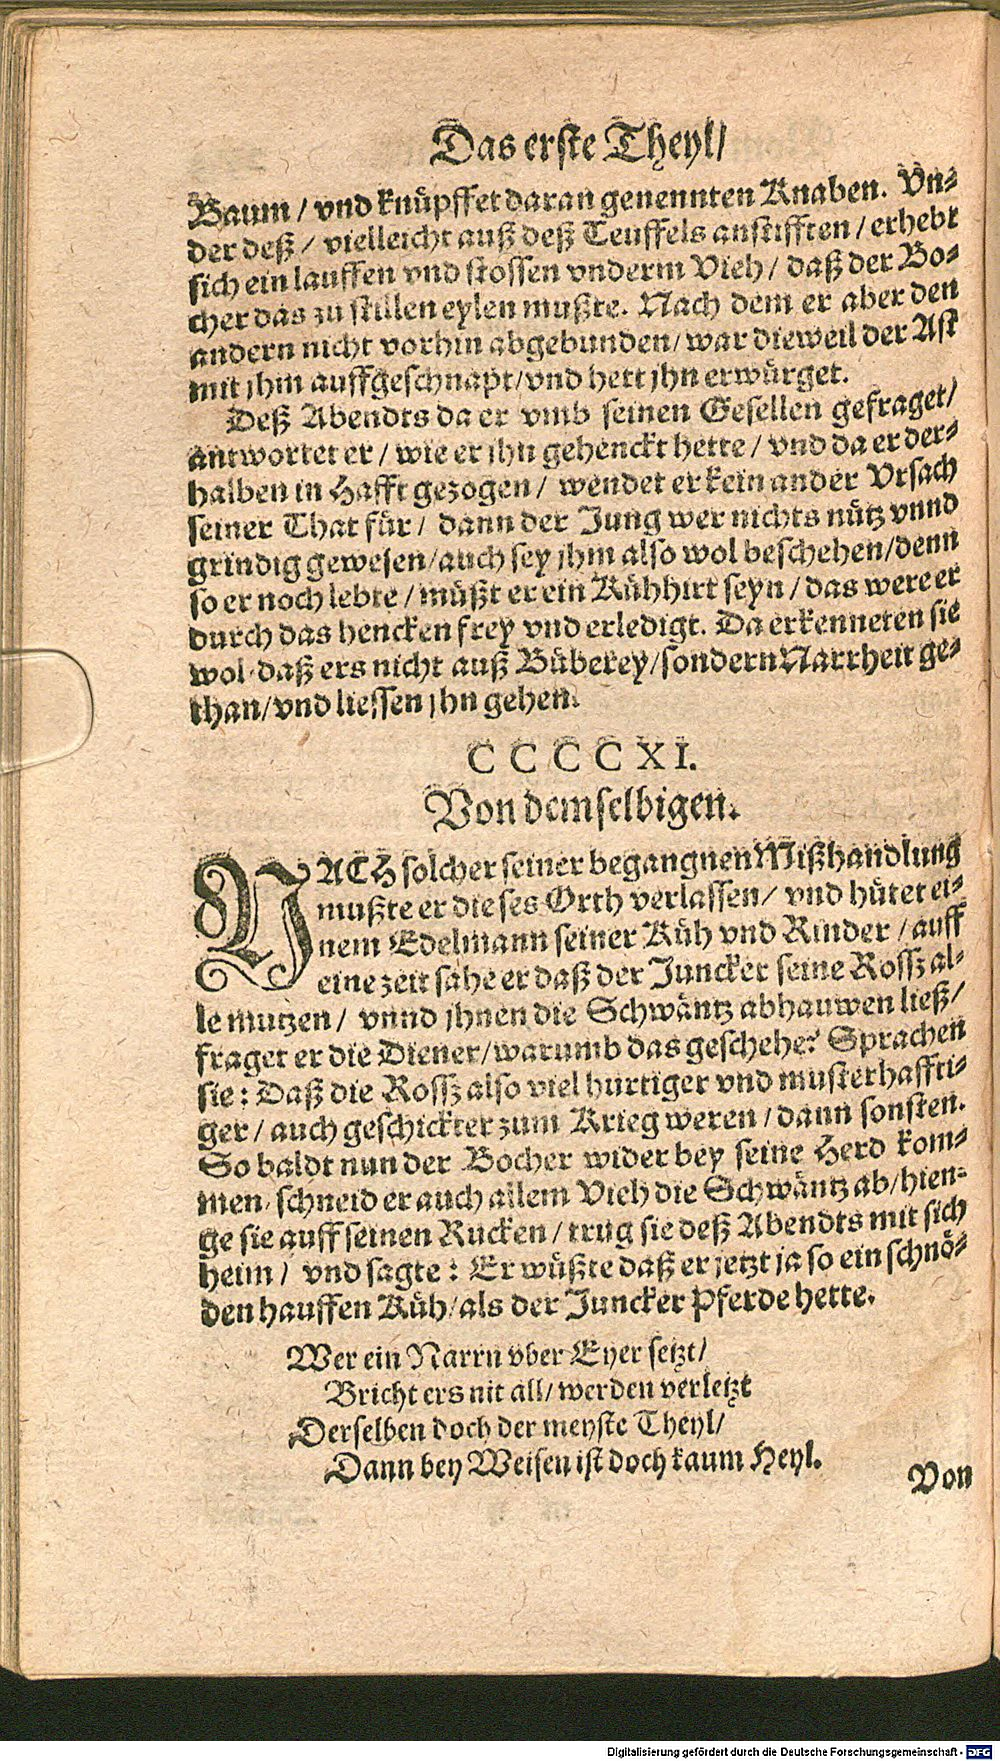 Das erste Theyl/
Baum / vnd knüpffet daran genennten Knaben. Vn⸗
der deß / villeicht auß deß Teuffels anstifften / erhebt
sich ein lauffen vnd stossen vnderm Vieh / daß der Bo⸗
cher das zu stillen eylen mußte. Nach dem er aber den
andern nicht vorhin abgebunden / war dieweil der Ast
mit jhm auffgeschnapt / vnd hett jhn erwürget.
Deß Abendts da er vmb seinen Gesellen gefraget /
antwortet er / wie er jhn gehenckt hette / vnd da er der⸗
halben in Hafft gezogen / wendet er kein ander Vrsach
seiner That für / dann der Jung wer nichts nütz vnnd
grindig gewesen / auch sey jhm also wol beschehen / denn
so er noch lebte / müßt er ein Kühhirt seyn / das were er
durch das hencken frey vnd erledigt. Da erkenneten sie
wol daß ers nicht auß Büberey / sondern Narrheit ge⸗
than / vnd liessen jhn gehen.
CCCCXI.
Von demselbigen.
NACH solcher seiner begangnen Mißhandlung
mußte er dieses Orth verlassen / vnd hütet ei⸗
nem Edelmann seiner Küh vnd Rinder / auff
eine zeit sahe er daß der Juncker seine Rossz al⸗
le mutzen / vnnd jhnen die Schwäntz abhauwen ließ /
fraget er die Diener / warumb das geschehe? Sprachen
sie: Daß die Rossz also viel hurtiger vnd musterhaffti⸗
ger / auch geschickter zum Krieg weren / dann sonsten.
So baldt nun der Bocher wider bey seine Herd kom⸗
men / schneid er auch allem Vieh die Schwäntz ab / hien⸗
ge sie auff seinen Rucken / trug sie deß Abendts mit sich
heim / vnd sagte: Er wüßte daß er jetzt ja so ein schnö⸗
den hauffen Küh / als der Juncker Pferde hette.
Wer ein Narrn vber Eyer setzt /
Bricht ers nit all / werden verletzt
Derselben doch der meyste Theyl /
Dann bey Weisen ist doch kaum Heyl.
Von
Digitalisierung gefördert durch die Deutsche Forschungsgemeinschaft - DFG